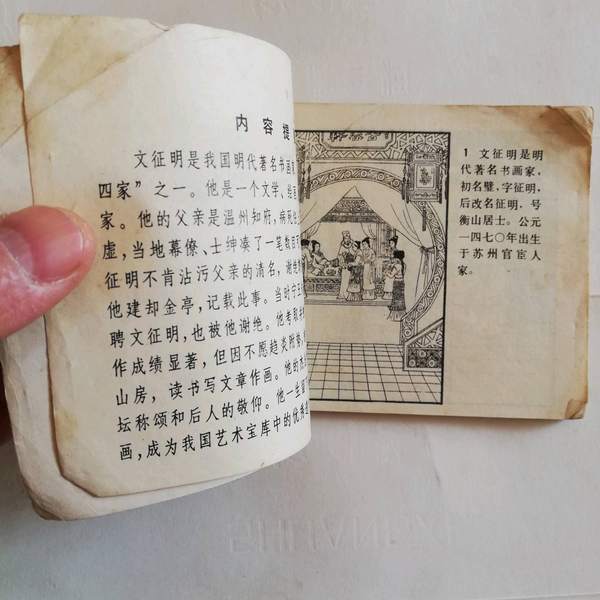 内容提
文征明是我国明代著名书画
四家”之一。他是一个文学、绘画
家。他的父亲是温州知府，病死任
虚，当地幕僚、士绅凑了一笔数百
征明不肯沾污父亲的清名，谢绝
他建却金亭，记载此事。当时宁王
聘文征明，也被他谢绝。他考取
作成绩显著，但因不愿趋炎附势，
山房，读书写文章作画。他的
坛称颂和后人的敬仰。他一生
画，成为我国艺术宝库中的优秀
1 文征明是明
代著名书画家，
初名璧，字征明，
后改名征明，号
衡山居士。公元
一四七〇年出生
于苏州官宦人
家。